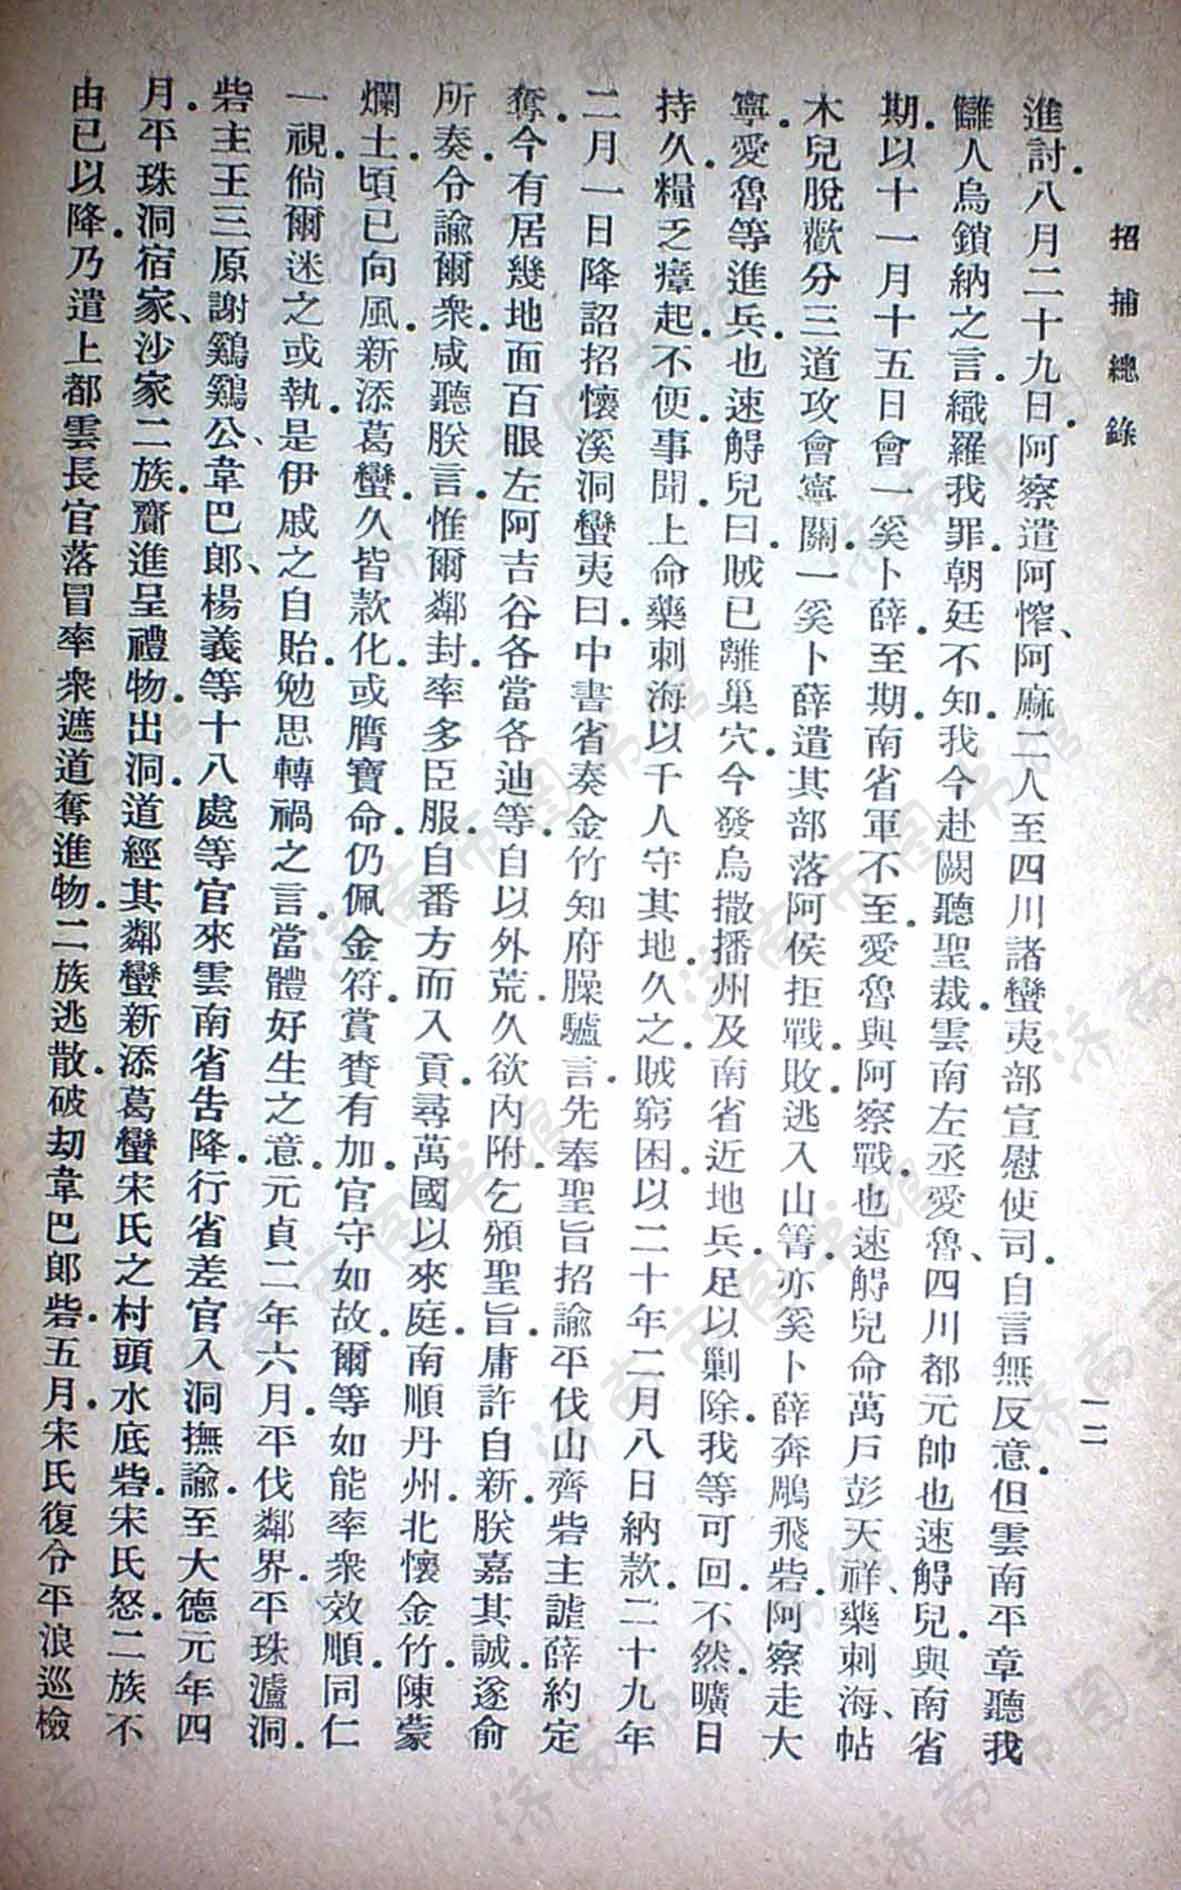 招捕總錄
一二
進討八月二十九日阿察遣阿㤰阿麻二人至四川諸蠻夷部宣慰使司自言無反意但雲南平章聽我
讎人烏鎖納之言織羅我罪朝廷不知我今赴闕聽聖裁雲南左丞愛魯四川都元帥也速䚟兒與南省
期以十一月十五日會一奚卜薛至期南省軍不至愛魯與阿察戰也速䚟兒命萬戶彭天祥藥剌海帖
木兒脫歡分三道攻會寧關一奚卜薛遣其部落阿侯拒戰敗逃入山箐亦奚卜薛奔鵰飛砦阿察走大
寧愛魯等進兵也速䚟兒曰賊已離巢穴今發烏撒播州及南省近地兵足以剿除我等可回不然曠日
持久糧乏瘴起不便事聞上命藥剌海以千人守其地久之賊窮困以二十年二月八日納款二十九年
二月一日降詔招懷溪洞蠻夷曰中書省奏金竹知府臊驢言先奉聖旨招諭平伐山齊砦主謔薛約定
奪今有居幾地面百眼左阿吉谷各當各迪等自以外荒久欲內附乞頒聖旨庸許自新朕嘉其誠遂俞
所奏令諭爾衆咸聽朕言惟爾鄰封率多臣服自番方而入貢尋萬國以來庭南順丹州北懷金竹陳蒙
爛土頃已向風新添葛蠻久皆款化或膺寶命仍佩金符賞賚有加官守如故爾等如能率衆效順同仁
一視倘爾迷之或執是伊戚之自貽勉思轉禍之言當體好生之意元貞二年六月平伐鄰界平珠瀘洞
砦主王三原謝鷄鷄公韋巴郎楊義等十八處等官來雲南省告降行省差官入洞撫諭至大德元年四
月平珠洞宿家沙家二族齎進呈禮物出洞道經其鄰蠻新添葛蠻宋氏之村頭水底砦宋氏怒二族不
由已以降乃遣上都雲長官落冒率衆遮道奪進物二族逃散破刧韋巴郎砦五月宋氏復令平浪巡檢